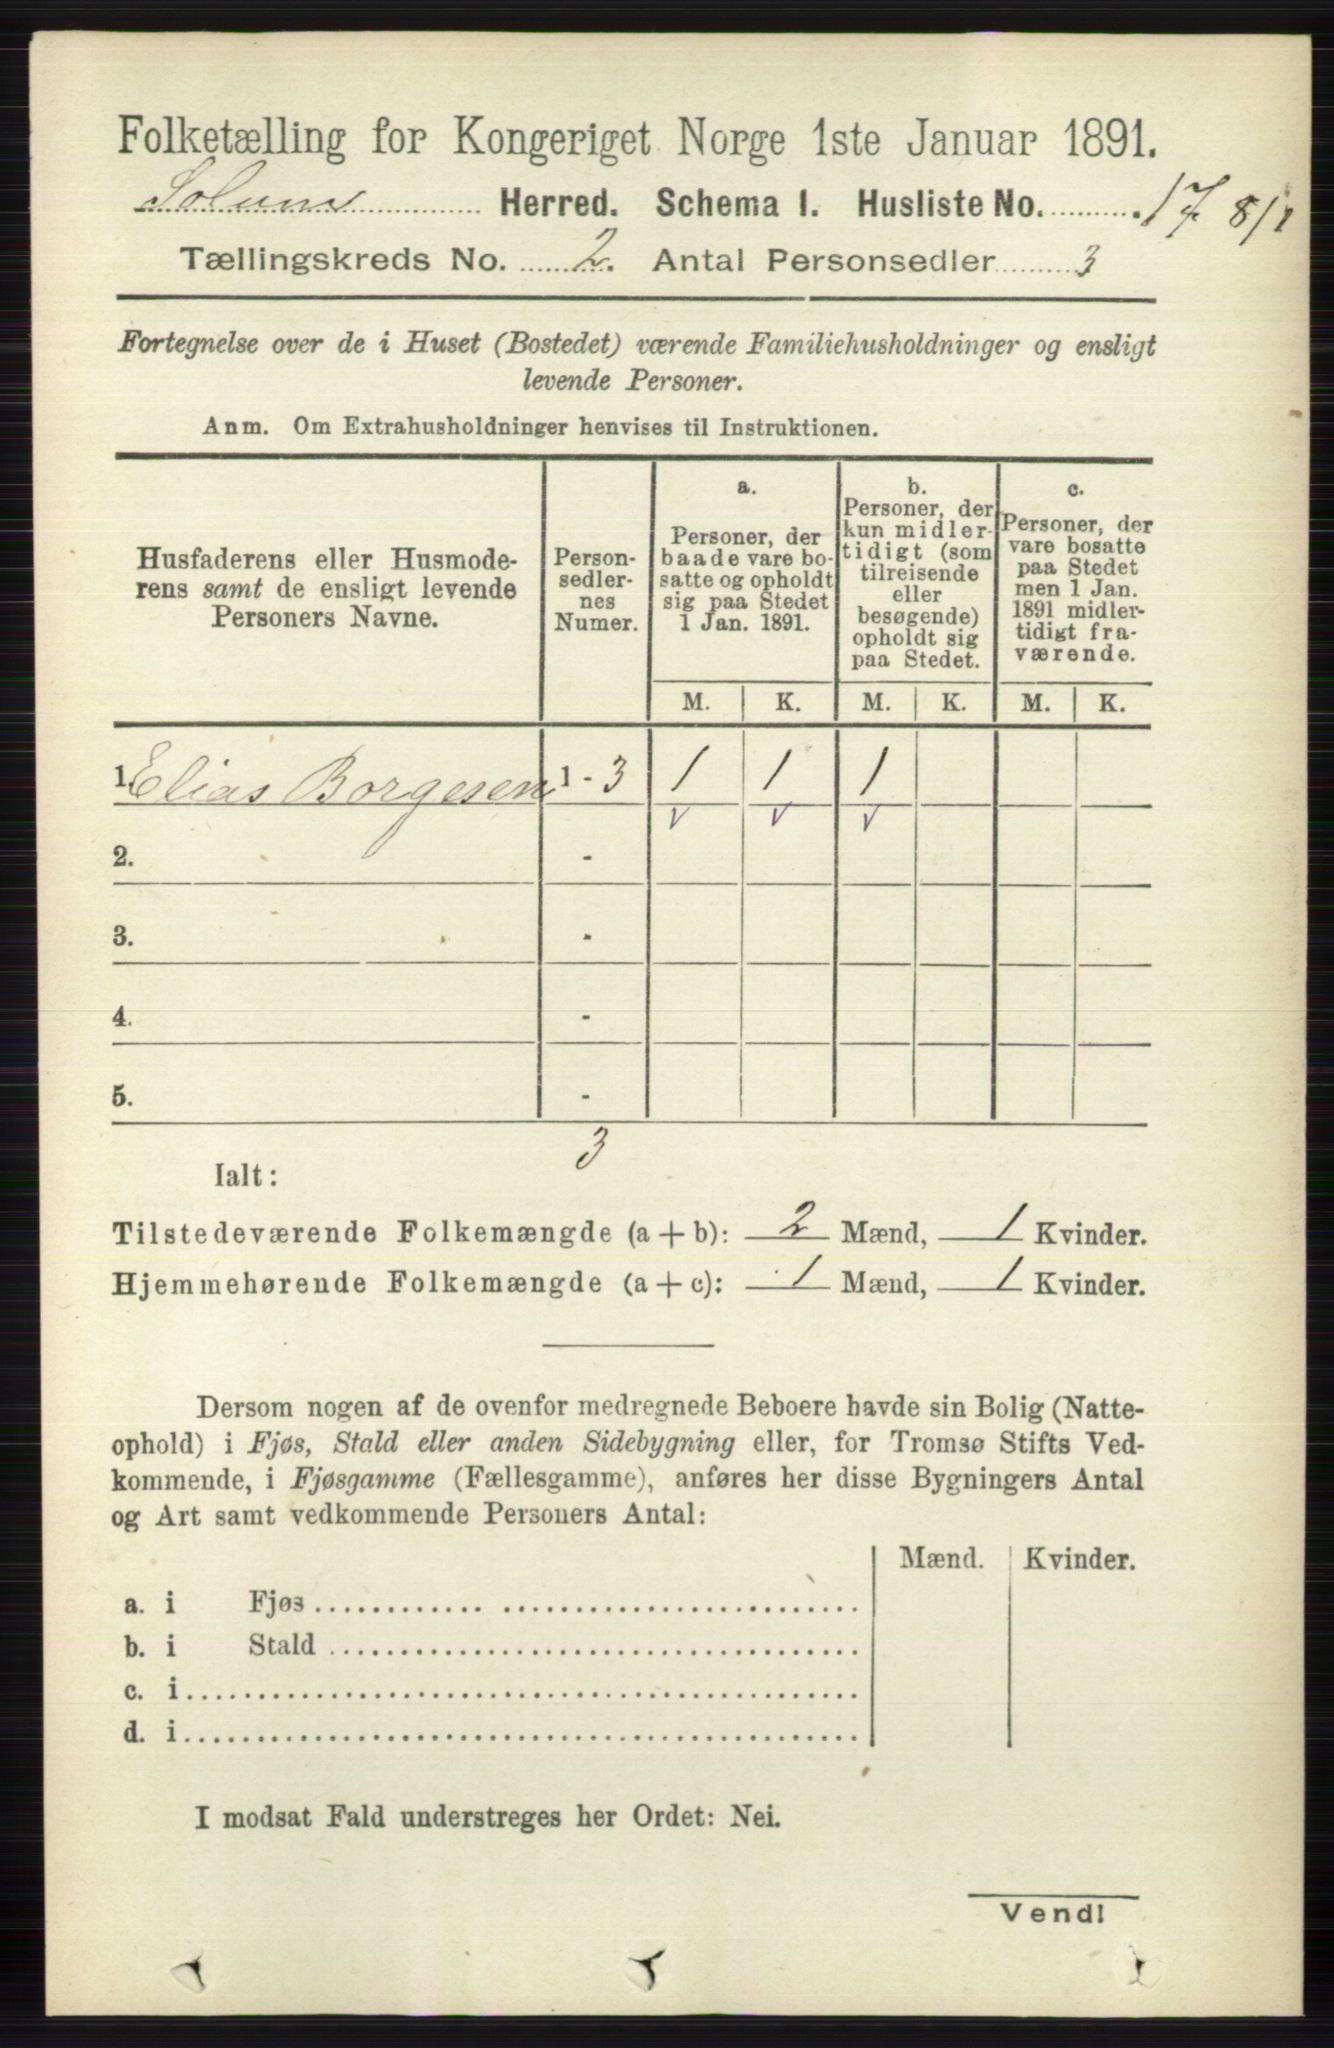 Folketælling for Kongeriget Norge 1ste Januar 1891.
Solum Herred. Schema I. Husliste No. 17 8/1
Tællingskreds No. 2. Antal Personsedler 3
Fortegnelse over de i Huset (Bostedet) værende Familiehusholdninger og ensligt
levende Personer.
Anm. Om Extrahusholdninger henvises til Instruktionen.
Husfaderens eller Husmode-
rens samt de ensligt levende
Personers Navne.
Person-
sedler-
nes
Numer.
a.
Personer, der
baade vare bo-
satte og opholdt
sig paa Stedet
1 Jan. 1891.
b.
Personer, der
kun midler-
tidigt (som
tilreisende
eller
besøgende)
opholdt sig
paa Stedet.
c.
Personer, der
vare bosatte
paa Stedet
men 1 Jan.
1891 midler-
tidigt fra-
værende.
M. K. M. K. M. K.
1. Elias Borgesen 1 - 3 1 1 1
v v v
2. -
3. -
4. -
5. -
3
Ialt:
Tilstedeværende Folkemængde (a + b): 2 Mænd, 1 Kvinder.
Hjemmehørende Folkemængde (a + c): 1 Mænd, 1 Kvinder.
Dersom nogen af de ovenfor medregnede Beboere havde sin Bolig (Natte-
ophold) i Fjøs, Stald eller anden Sidebygning eller, for Tromsø Stifts Ved-
kommende, i Fjøsgamme (Fællesgamme), anføres her disse Bygningers Antal
og Art samt vedkommende Personers Antal:
Mænd. Kvinder.
a. i Fjøs
b. i Stald
c. i
d. i
I modsat Fald understreges her Ordet: Nei.
Vend!